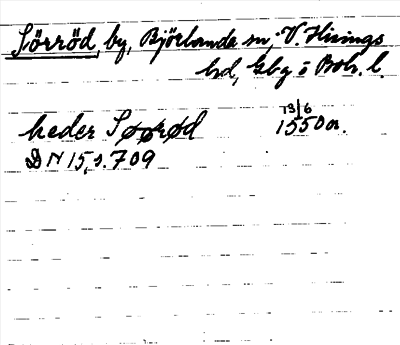 Sörröd, by, Björlanda sn, V. Hisings
hd, Gbg o Boh. l.
heder Søørød 13/6 1550 or.
DN 15, s. 709